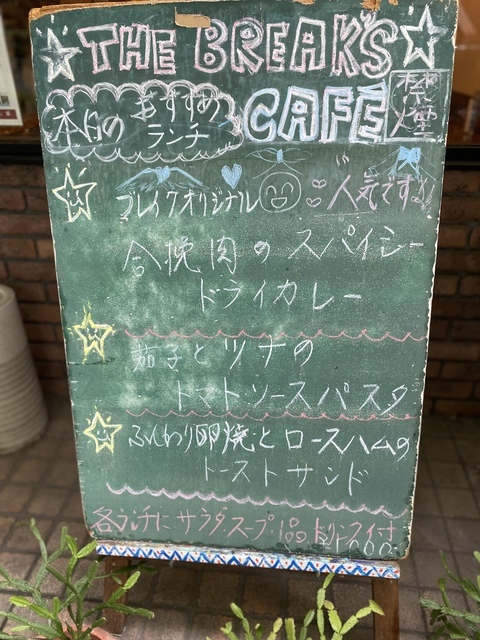 THE BREAK'S
CAFÉ
禁煙
本日の
おすすめ
ランチ
ブレイクオリジナル
人気です!!
合挽肉のスパイシー
ドライカレー
茄子とツナの
トマトソースパスタ
ふんわり卵焼とロースハムの
トーストサンド
各ランチにサラダスープ ドリンク付